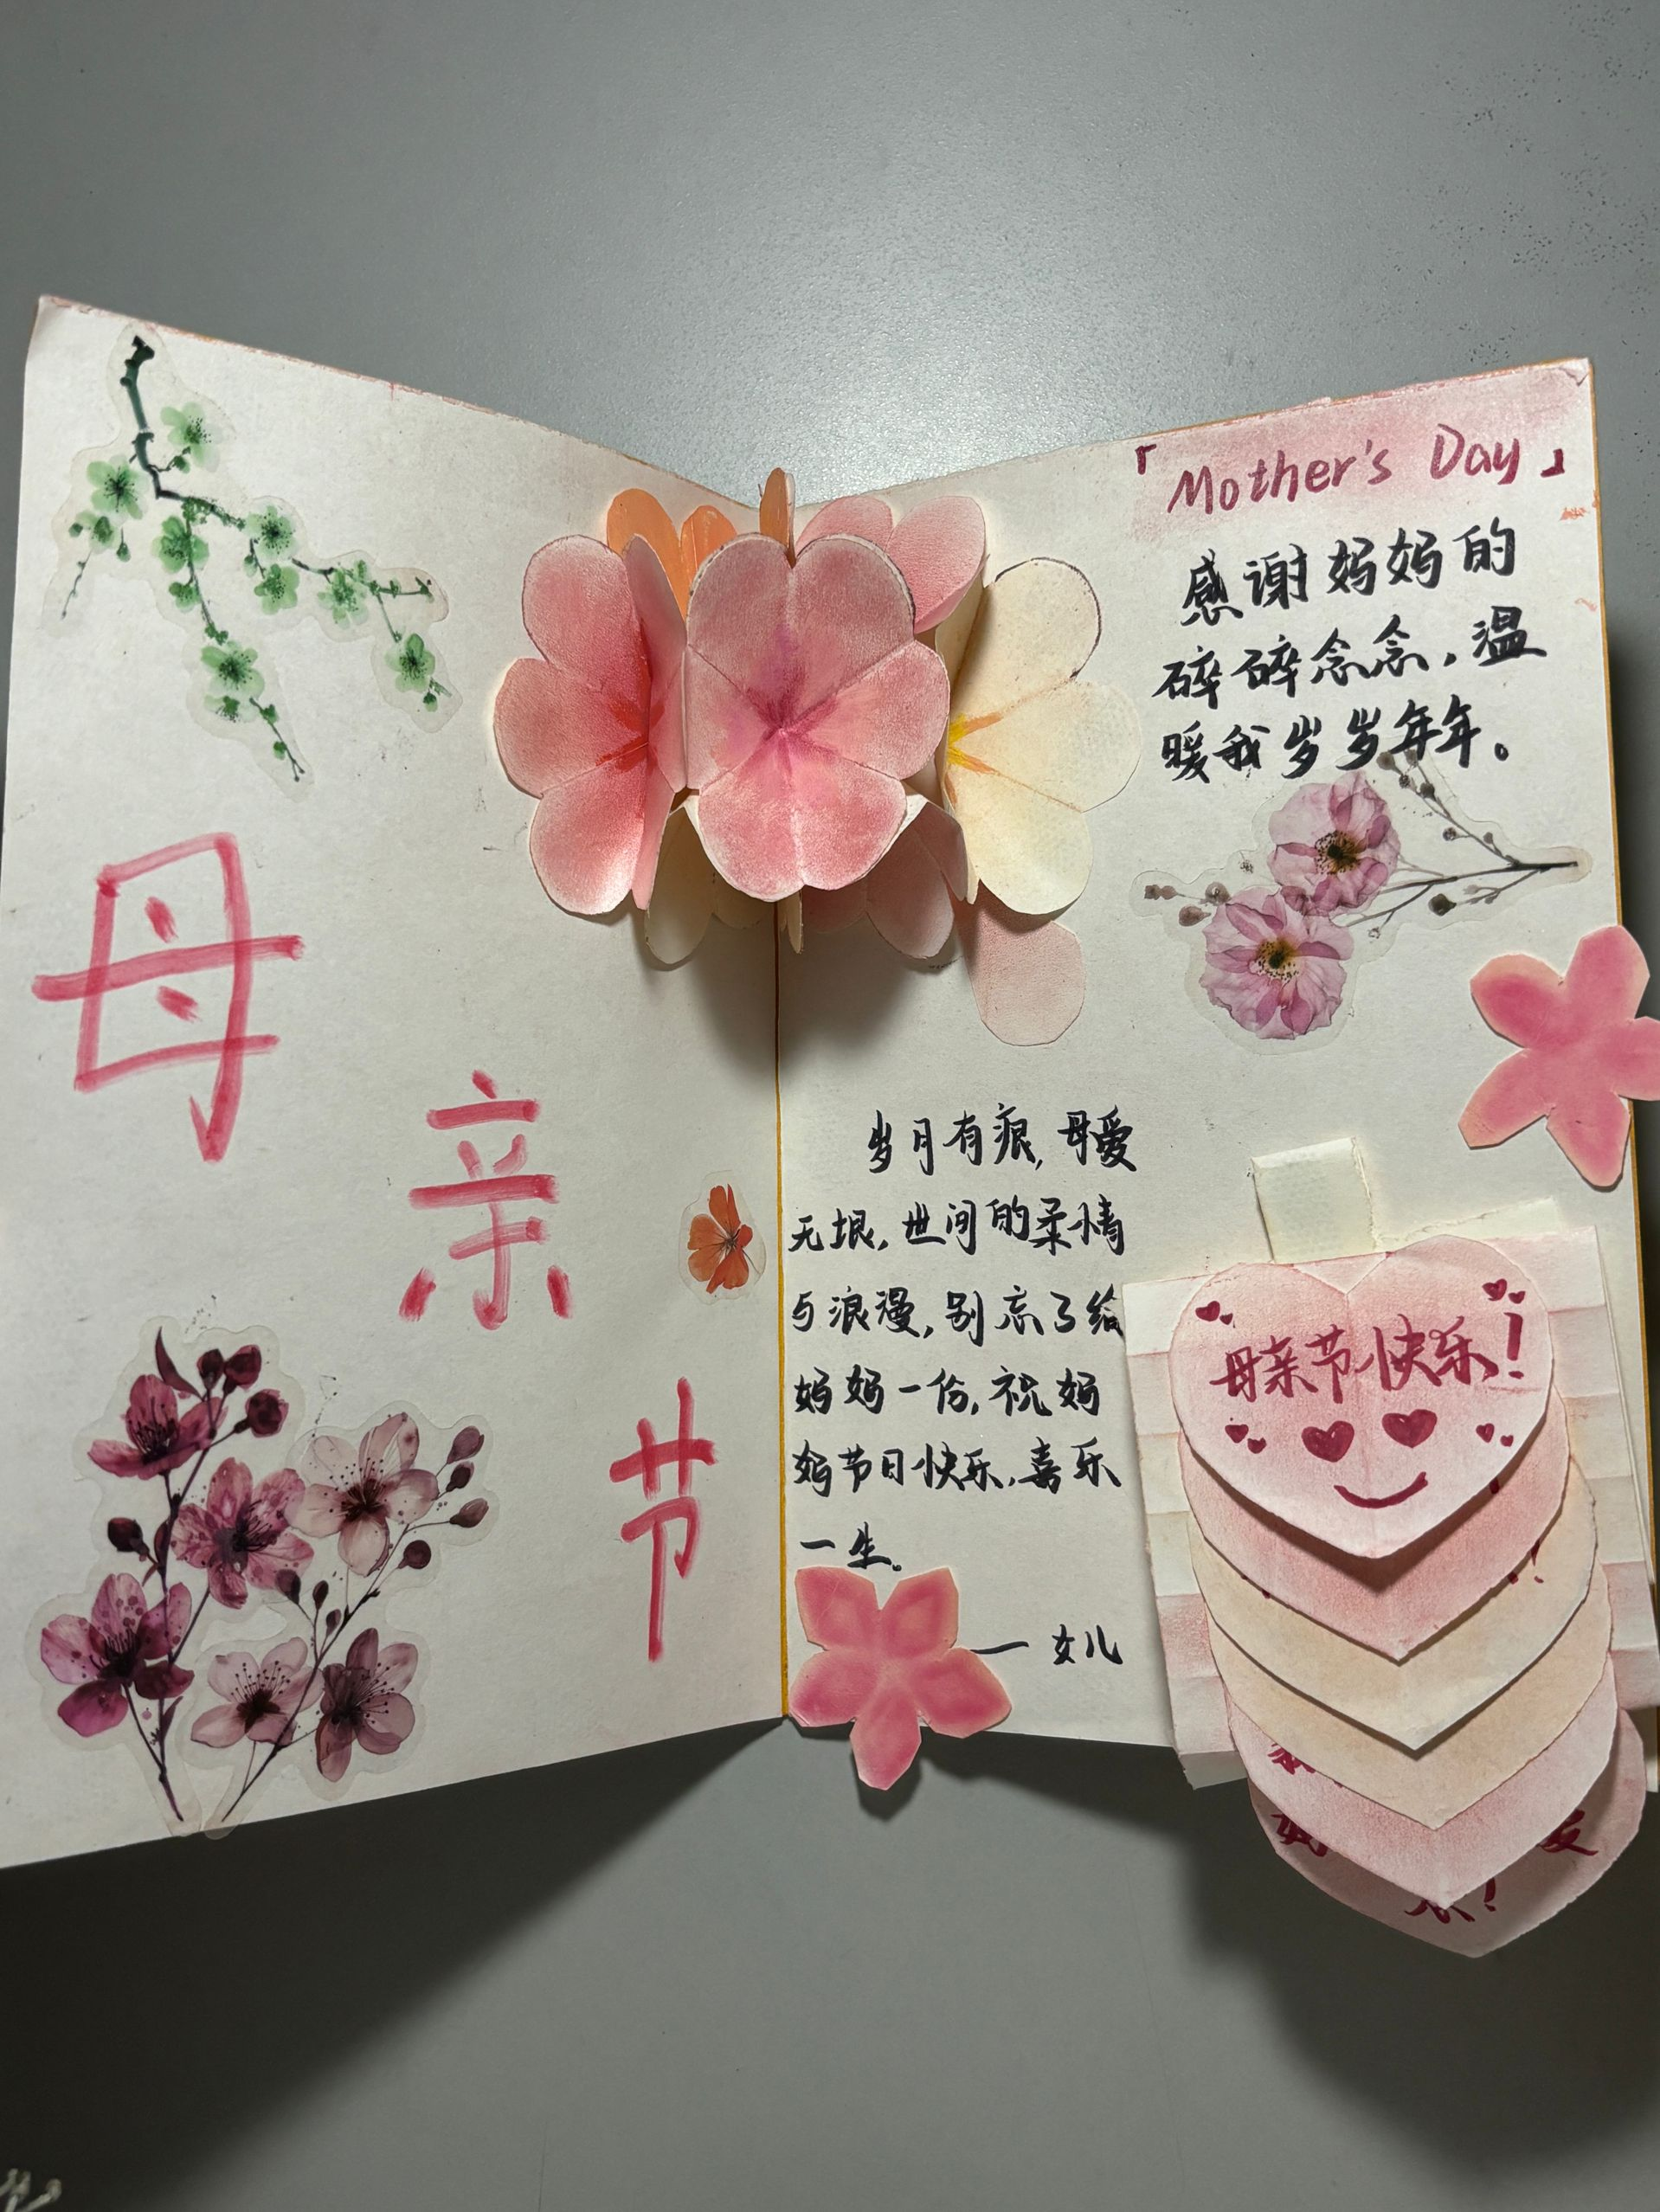 母
亲
节
「Mother's Day」
感谢妈妈的
碎碎念念，温
暖我岁岁年年。
岁月有痕，母爱
无垠，世间的柔情
与浪漫，别忘了给
妈妈一份，祝妈
妈节日快乐，喜乐
一生。
— 女儿
母亲节快乐！